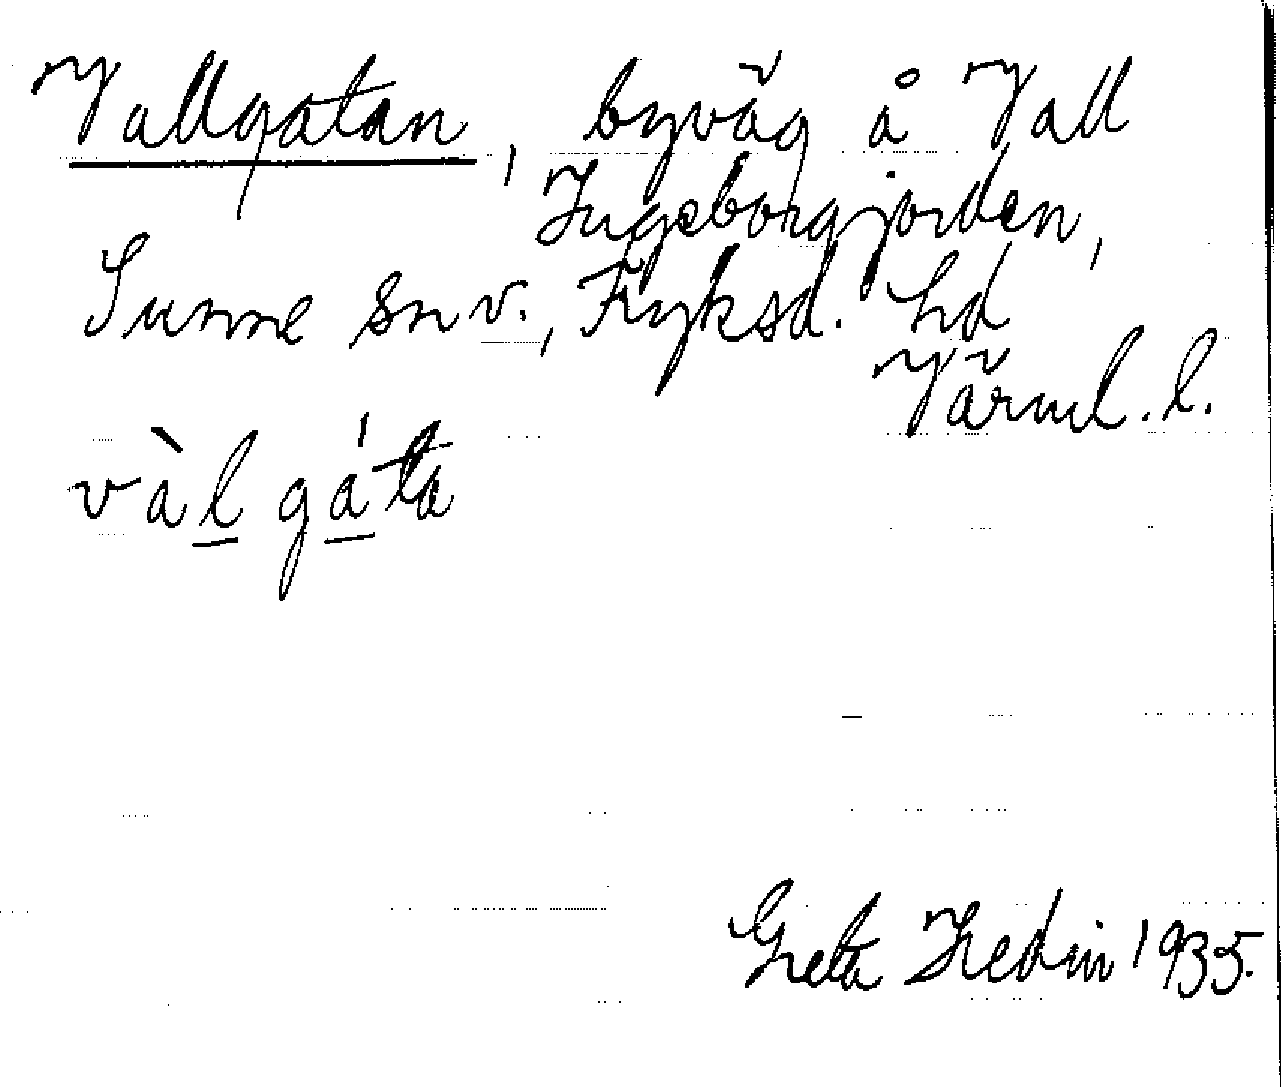 Vallgatan, byväg å Vall
Ingeborgjorden,
Sunne sn v., Fryksd. hd
Värml. l.
vàl gáta
Greta Hedin 1935.